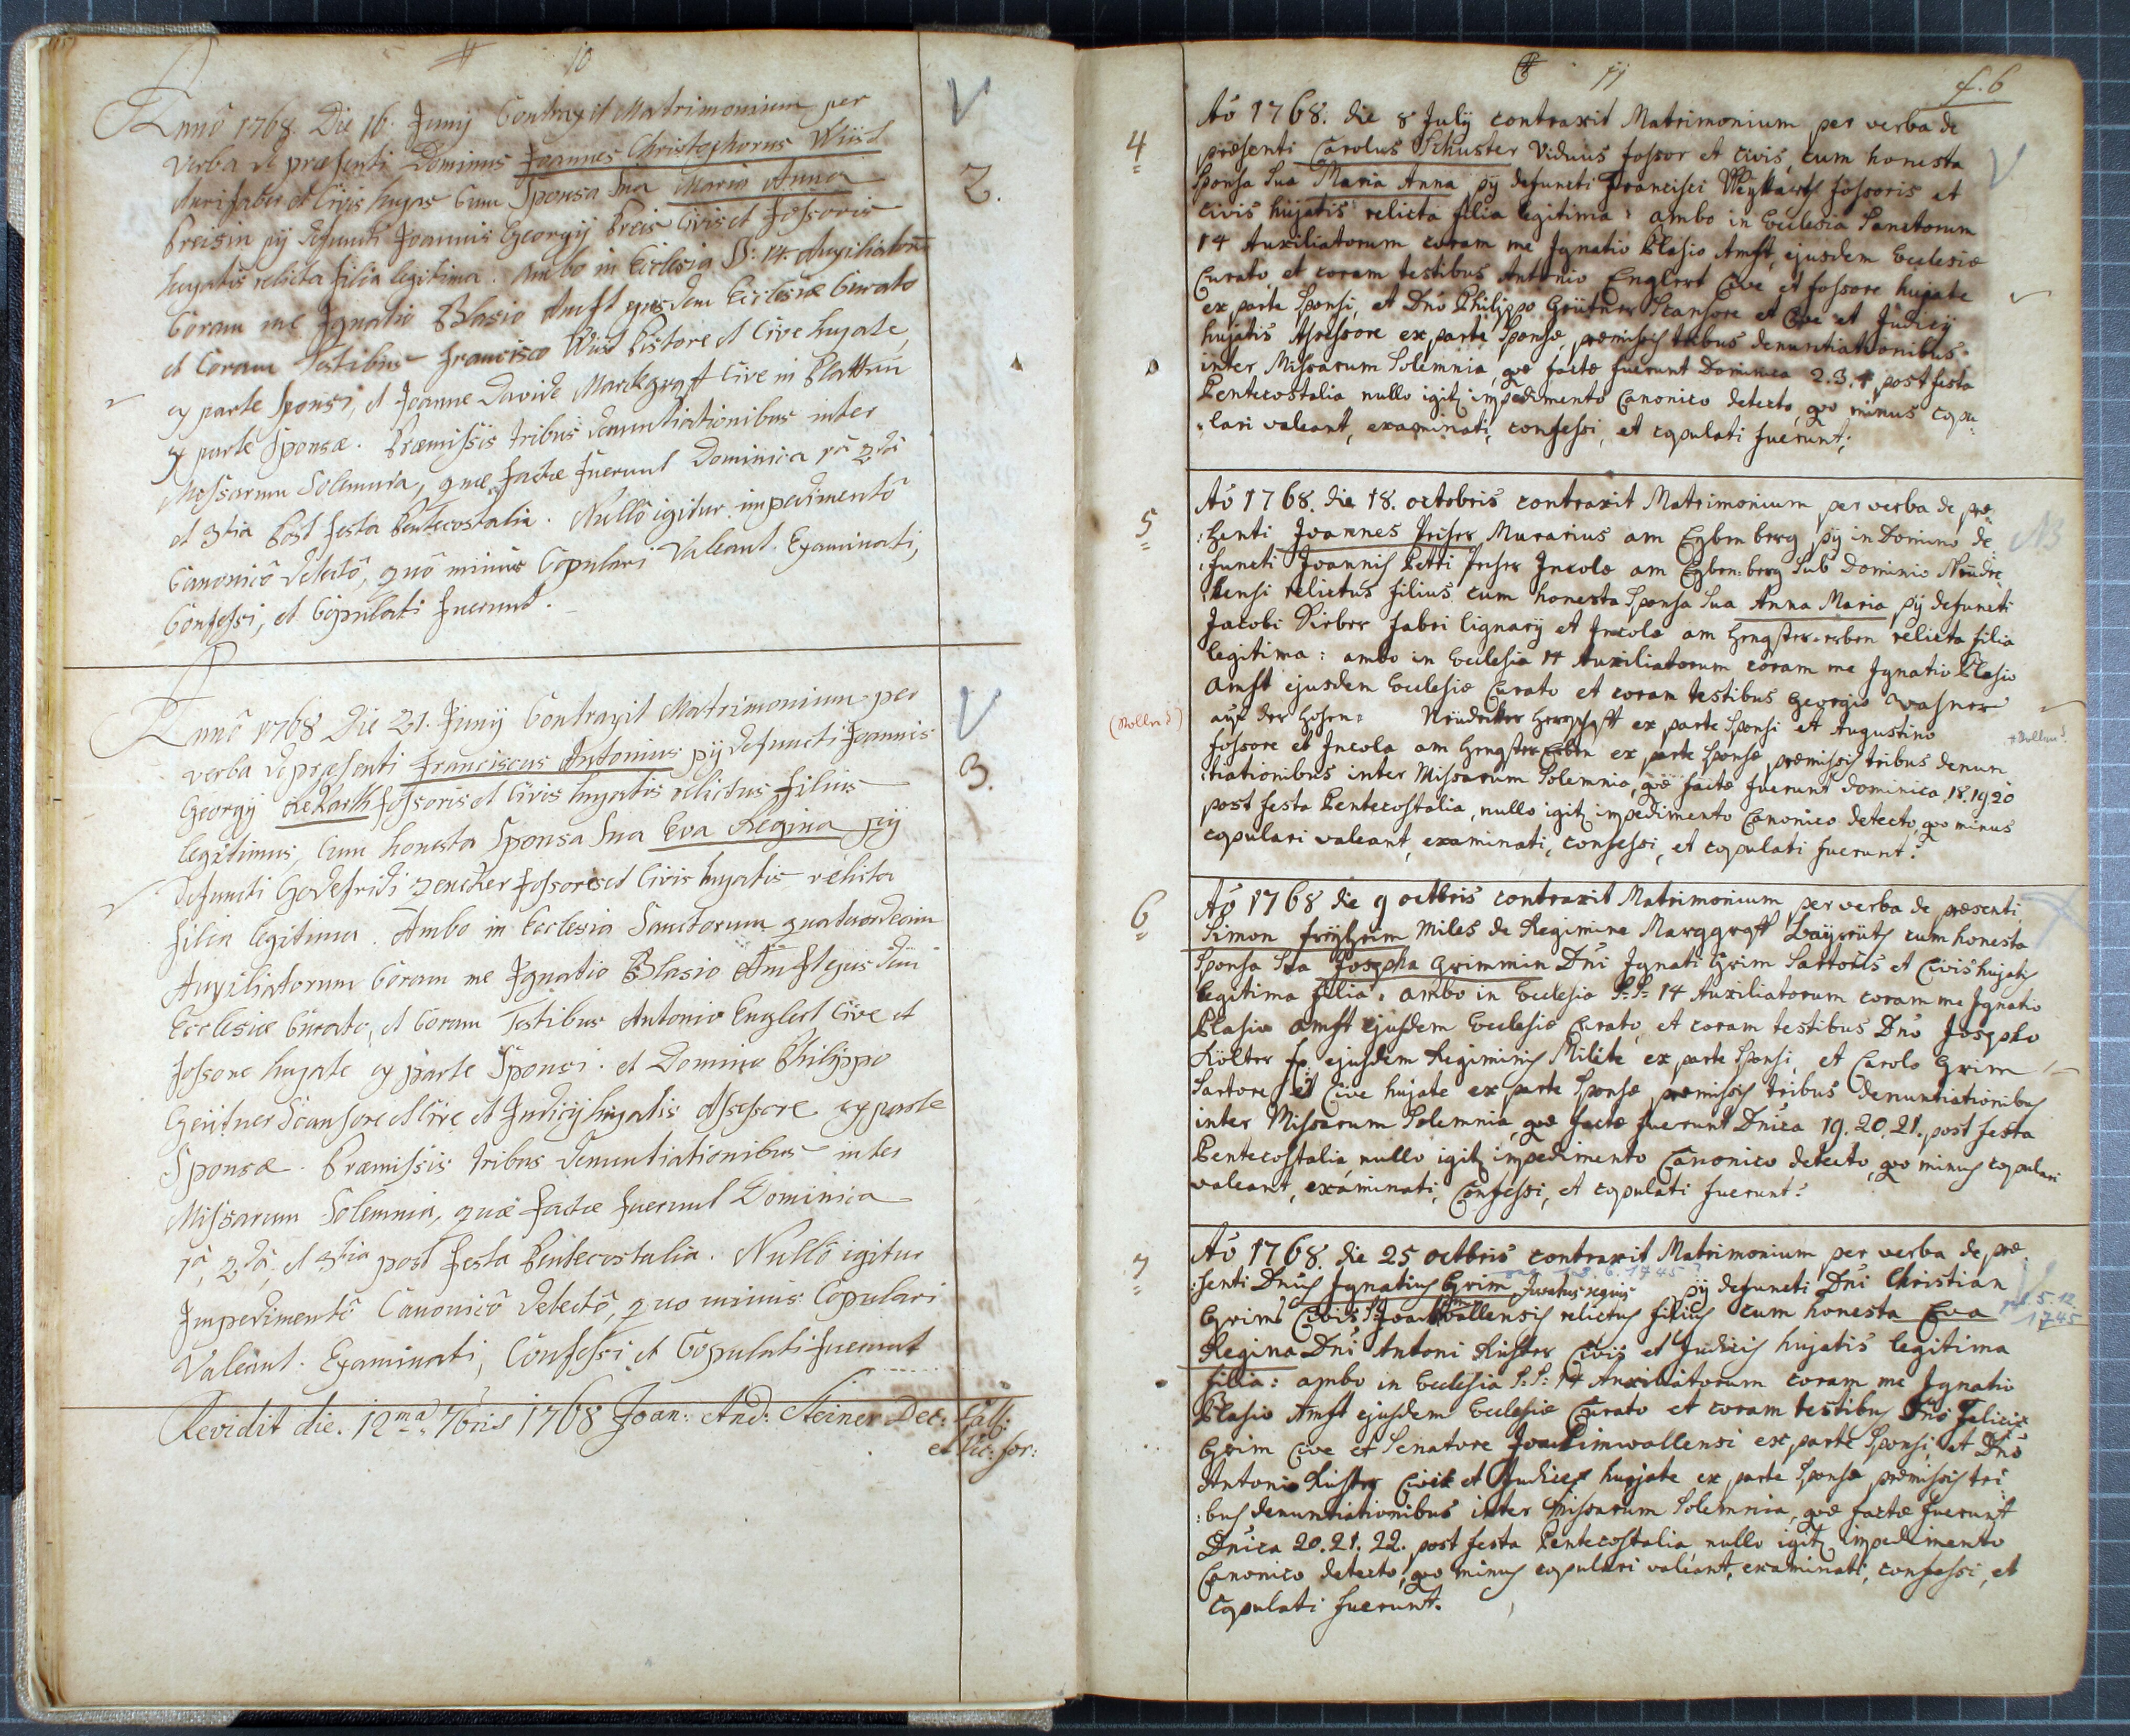 10
Annô 1768. Die 16. Junij Contraxit Matrimonium per
verba de præsenti Dominus Joannes Christophorus Wüst
Aurifaber et Civis hujas Cum Sponsa Sua Maria Anna
Preisin pij defuncti Joannis Georgij Preis Civis et fossoris
hujatis relicta filia legitima. Ambo in Ecclesia SS: 14. Auxiliatorū
Coram me Ignatio Blasio Amft ejusdem Ecclesiæ Curato
et Coram Testibus Francisco Wüst Pistore et Cive hujate,
ex parte Sponsi, et Joanne Davide Marckgraff Cive in Blatten
ex parte Sponsæ. Præmissis tribus denuntiationibus inter
Missarum Solemnia, quæ factæ fuerunt Dominica 1â 2dâ
et 3tia Post festa Pentecostalia. Nullô igitur impedimentô
Canonicô detectô, quô minùs Copulari Valeant. Examinati,
Confessi, et Copulati fuerunt.
2.
Annô 1768 Die 21. Junij Contraxit Matrimonium per
verba de præsenti Franciscus Antonius pij defuncti Joannis
Georgij fossoris et Civis hujatis relictus filius
legitimus, Cum honesta Sponsa Sua Eva Regina pij
defuncti Godefridi Zencker fossoris et Civis hujatis relicta
filia legitima. Ambo in Ecclesia Sanctorum quatuordecim
Auxiliatorum Coram me Ignatio Blasio Amft ejusdem
Ecclesiæ Curato, et Coram Testibus Antonio Englert Cive et
fossore hujate ex parte Sponsi. et Domino Philippo
Geütner Scansore et Cive et Judicij hujatis Assessore ex parte
Sponsæ. Præmissis tribus denuntiationibus inter
Missarum Solemnia, quæ factæ fuerunt Dominica
1â, 2dâ, et 3tia post festa Pentecostalia. Nullô igitur
Impedimentô Canonicô detectô, quo minus Copulari
Valeant. Examinati, Confessi et Copulati fuerunt
3.
Revidit die. 12ma 7bris 1768 Joan: And: Steiner Dec:
et Vic: for:
11
f. 6
4
Aō 1768. die 8 July contraxit Matrimonium per verba de
præsenti Carolus Schuster Viduus fossor et civis, cum honesta
Sponsa Sua Maria Anna pij defuncti Francisci fossoris et
civis hujatis relicta filia legitima: ambo in Ecclesia Sanctorum
14 Auxiliatorum coram me Ignatio Blasio Amft, ejusdem Ecclesiæ
Curato, et coram testibus Antonio Englert Cive et fossore hujate
ex parte Sponsi, et Dnō Philippo Geütner Scansore et Cive et Judicij
hujatis Assessore ex parte Sponsæ, præmissis tribus denuntiationibus
inter Missarum Solemnia, qæ factæ fuerunt Dominica 2. 3. 4 post festa
Pentecostalia nullo igitꝫ impedimento Canonico detecto, qvo minus copu:
:lari valeant, examinati, confessi, et copulati fuerunt;
5
Aō 1768. die 18. octobris contraxit Matrimonium per verba de præ:
:senti Joannes Murarius am Egbenberg pij in Domino de
:functi Joannis Petri Incolæ am Egben:berg Sub Dominio Neüde
:kensi relictus filius cum honesta Sponsa Sua Anna Maria pij defuncti
Jacobi fabri lignarij et Incolæ am Hengstererben relicta filia
legitima: ambo in Ecclesia 14 Auxiliatorum coram me Ignatio Blasio
Amft ejusdem Ecclesiæ Curato et coram testibus Georgio Wasner
auf der Neüdecker Herrschaft ex parte Sponsi et Augustino
fossore et Incola am Hengster Erben ex parte Sponsæ, præmissis tribus denun
:tiationibus inter Missarum Solemnia, qvæ factæ fuerunt dominica 18. 19 20
post festa Pentecostalia, nullo igitꝫ impedimento Canonico detecto, qvo minus
copulari valeant, examinati, confessi, et copulati fuerunt.
NB
6
Aō 1768 die 9 octbris contraxit Matrimonium per verba de præsenti
Simon Miles de Regimine Marggraff Bayreüth cum honesta
Sponsa Sua Josepha Grimmin Dni Ignati Grim Sartoris et Civis hujatis
legitima filia: ambo in Ecclesia S: S: 14 Auxiliatorum coram me Ignatio
Blasio Amft ejusdem Ecclesiæ Curato, et coram testibus Dnō Josepho
Költer ejusdem Regiminis Milite, ex parte Sponsi, et Carolo Grim
Sartore et Cive hujate ex parte Sponsæ, præmissis tribus denuntiationibus
inter Missarum Solemnia, qvæ factæ fuerunt Dnica 19. 20. 21. post festa
Pentecostalia, nullo igitꝫ impedimento Canonico detecto, qvo minus copulari
valeant, examinati, Confessi, et copulati fuerunt.
7
Aō 1768. die 25 octbris contraxit Matrimonium per verba de præ
:senti Dnus Ignatius Grim Juratus regius pij defuncti Dni Christian
Grim Civis Joachimvallensis relictus filius cum honesta Eva
Regina Dni Antoni Richter Civis et Judicis hujatis legitima
filia: ambo in Ecclesia S: S: 14 Auxiliatorum coram me Ignatio
Blasio Amft ejusdem Ecclesiæ Curato et coram testibus Dnō Felici
Grim Cive et Senatore Joachimvallensi ex parte Sponsi, et Dnō
Antonio Richter Cive et Judice hujate ex parte Sponsæ præmissis tri
:bus denuntiationibus inter Missarum Solemnia, qvæ factæ fuerunt
Dnica 20. 21. 22. post festa Pentecostalia nullo igitꝫ impedimento
Canonico detecto, qvo minus copulari valeant, examinati, confessi, et
copulati fuerunt.